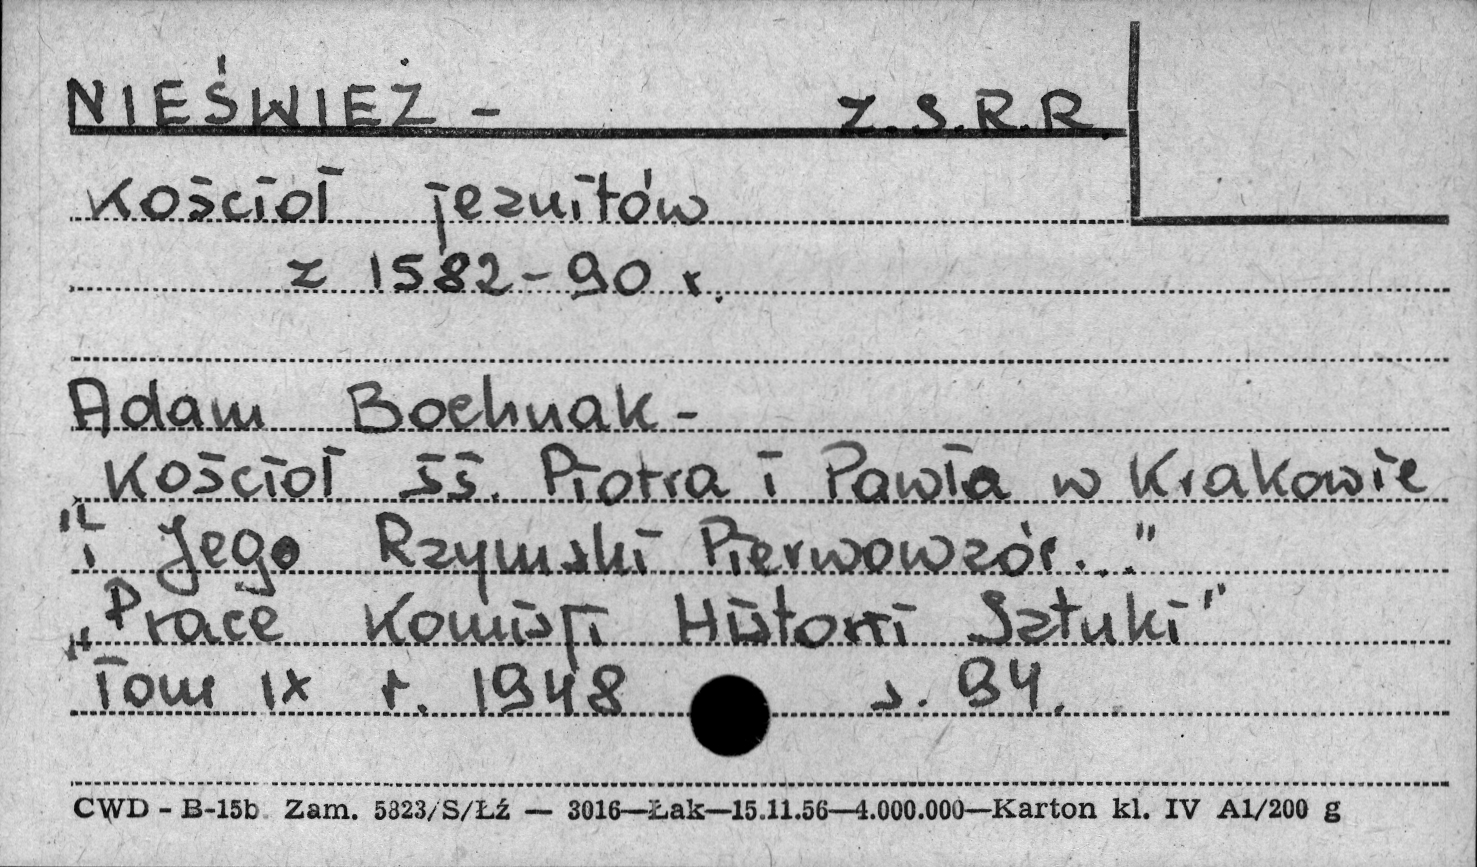 NIEŚWIEŻ - Z.S.R.R.
Kościół jezuitów
z 1582-90 r.
Adam Bochnak -
Kościół śś. Piotra i Pawła w Krakowie
"i Jego Rzymski Pierwowzór..."
„Prace Komisji Historii Sztuki"
Tom IX r. 1948 s. 94.
CWD - B-15b Zam. 5823/S/Łź — 3016—Łak—15.11.56—4.000.000—Karton kl. IV A1/200 g